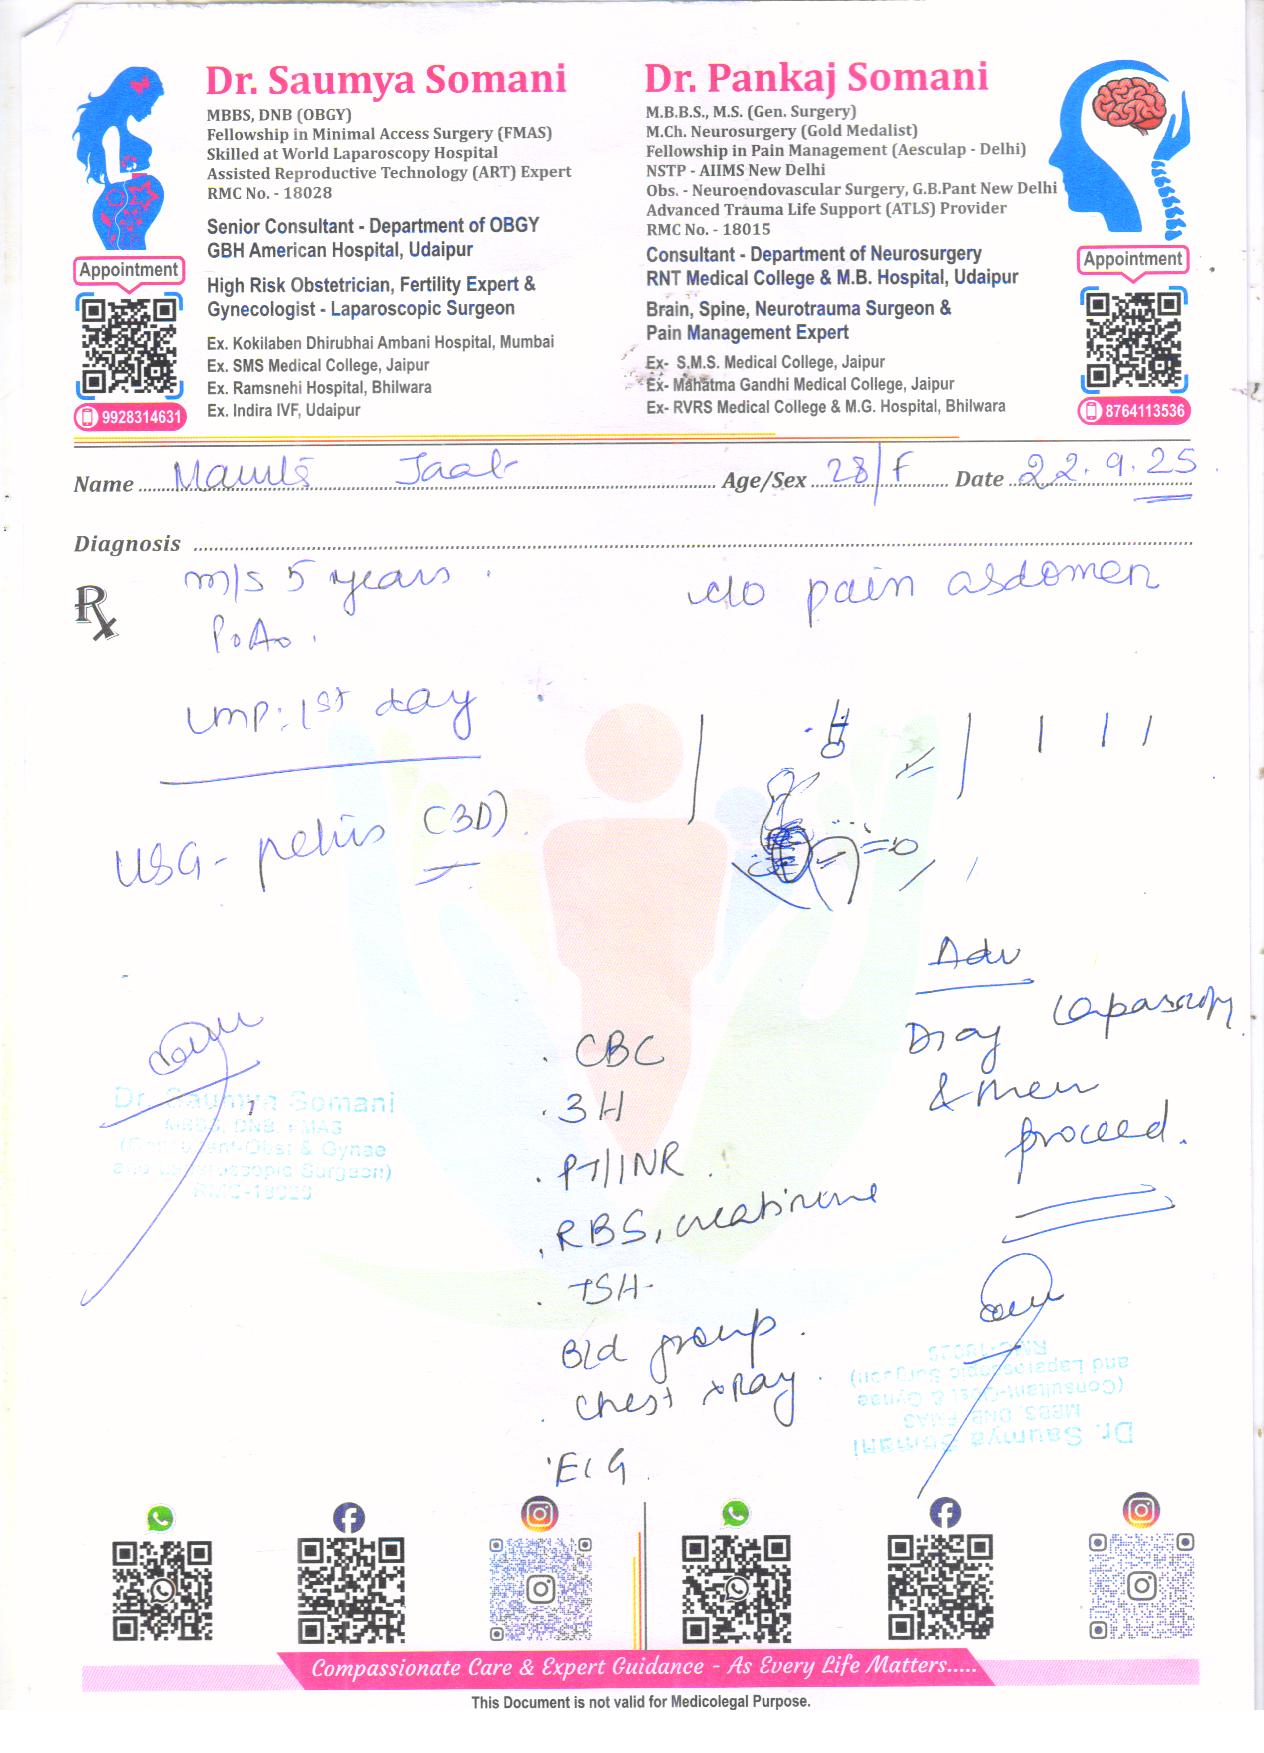 Dr. Saumya Somani
MBBS, DNB (OBGY)
Fellowship in Minimal Access Surgery (FMAS)
Skilled at World Laparoscopy Hospital
Assisted Reproductive Technology (ART) Expert
RMC No. - 18028
Senior Consultant - Department of OBGY
GBH American Hospital, Udaipur
High Risk Obstetrician, Fertility Expert &
Gynecologist - Laparoscopic Surgeon
Ex. Kokilaben Dhirubhai Ambani Hospital, Mumbai
Ex. SMS Medical College, Jaipur
Ex. Ramsnehi Hospital, Bhilwara
Ex. Indira IVF, Udaipur
Appointment
9928314631
Dr. Pankaj Somani
M.B.B.S., M.S. (Gen. Surgery)
M.Ch. Neurosurgery (Gold Medalist)
Fellowship in Pain Management (Aesculap - Delhi)
NSTP - AIIMS New Delhi
Obs. - Neuroendovascular Surgery, G.B.Pant New Delhi
Advanced Trauma Life Support (ATLS) Provider
RMC No. - 18015
Consultant - Department of Neurosurgery
RNT Medical College & M.B. Hospital, Udaipur
Brain, Spine, Neurotrauma Surgeon &
Pain Management Expert
Ex- S.M.S. Medical College, Jaipur
Ex- Mahatma Gandhi Medical College, Jaipur
Ex- RVRS Medical College & M.G. Hospital, Bhilwara
Appointment
8764113536
Name Age/Sex 28/F Date 22.9.25
Diagnosis
Rx m/s 5 years. c/o pain abdomen
P0A0.
LMP: 1st day
USG - pelvis (3D)
Adv
Laparoscopy
&
proceed.
. CBC
. 3H
. PT/INR
. RBS, creatinine
. TSH
Bld group.
. Chest xRay.
. ECG.
Dr. Saumya Somani
MBBS, DNB, FMAS
(Consultant-Obst & Gynae
and Laparoscopic Surgeon)
Dr. Saumya Somani
MBBS, DNB, FMAS
(Consultant-Obst & Gynae
and Laparoscopic Surgeon)
Compassionate Care & Expert Guidance - As Every Life Matters.....
This Document is not valid for Medicolegal Purpose.